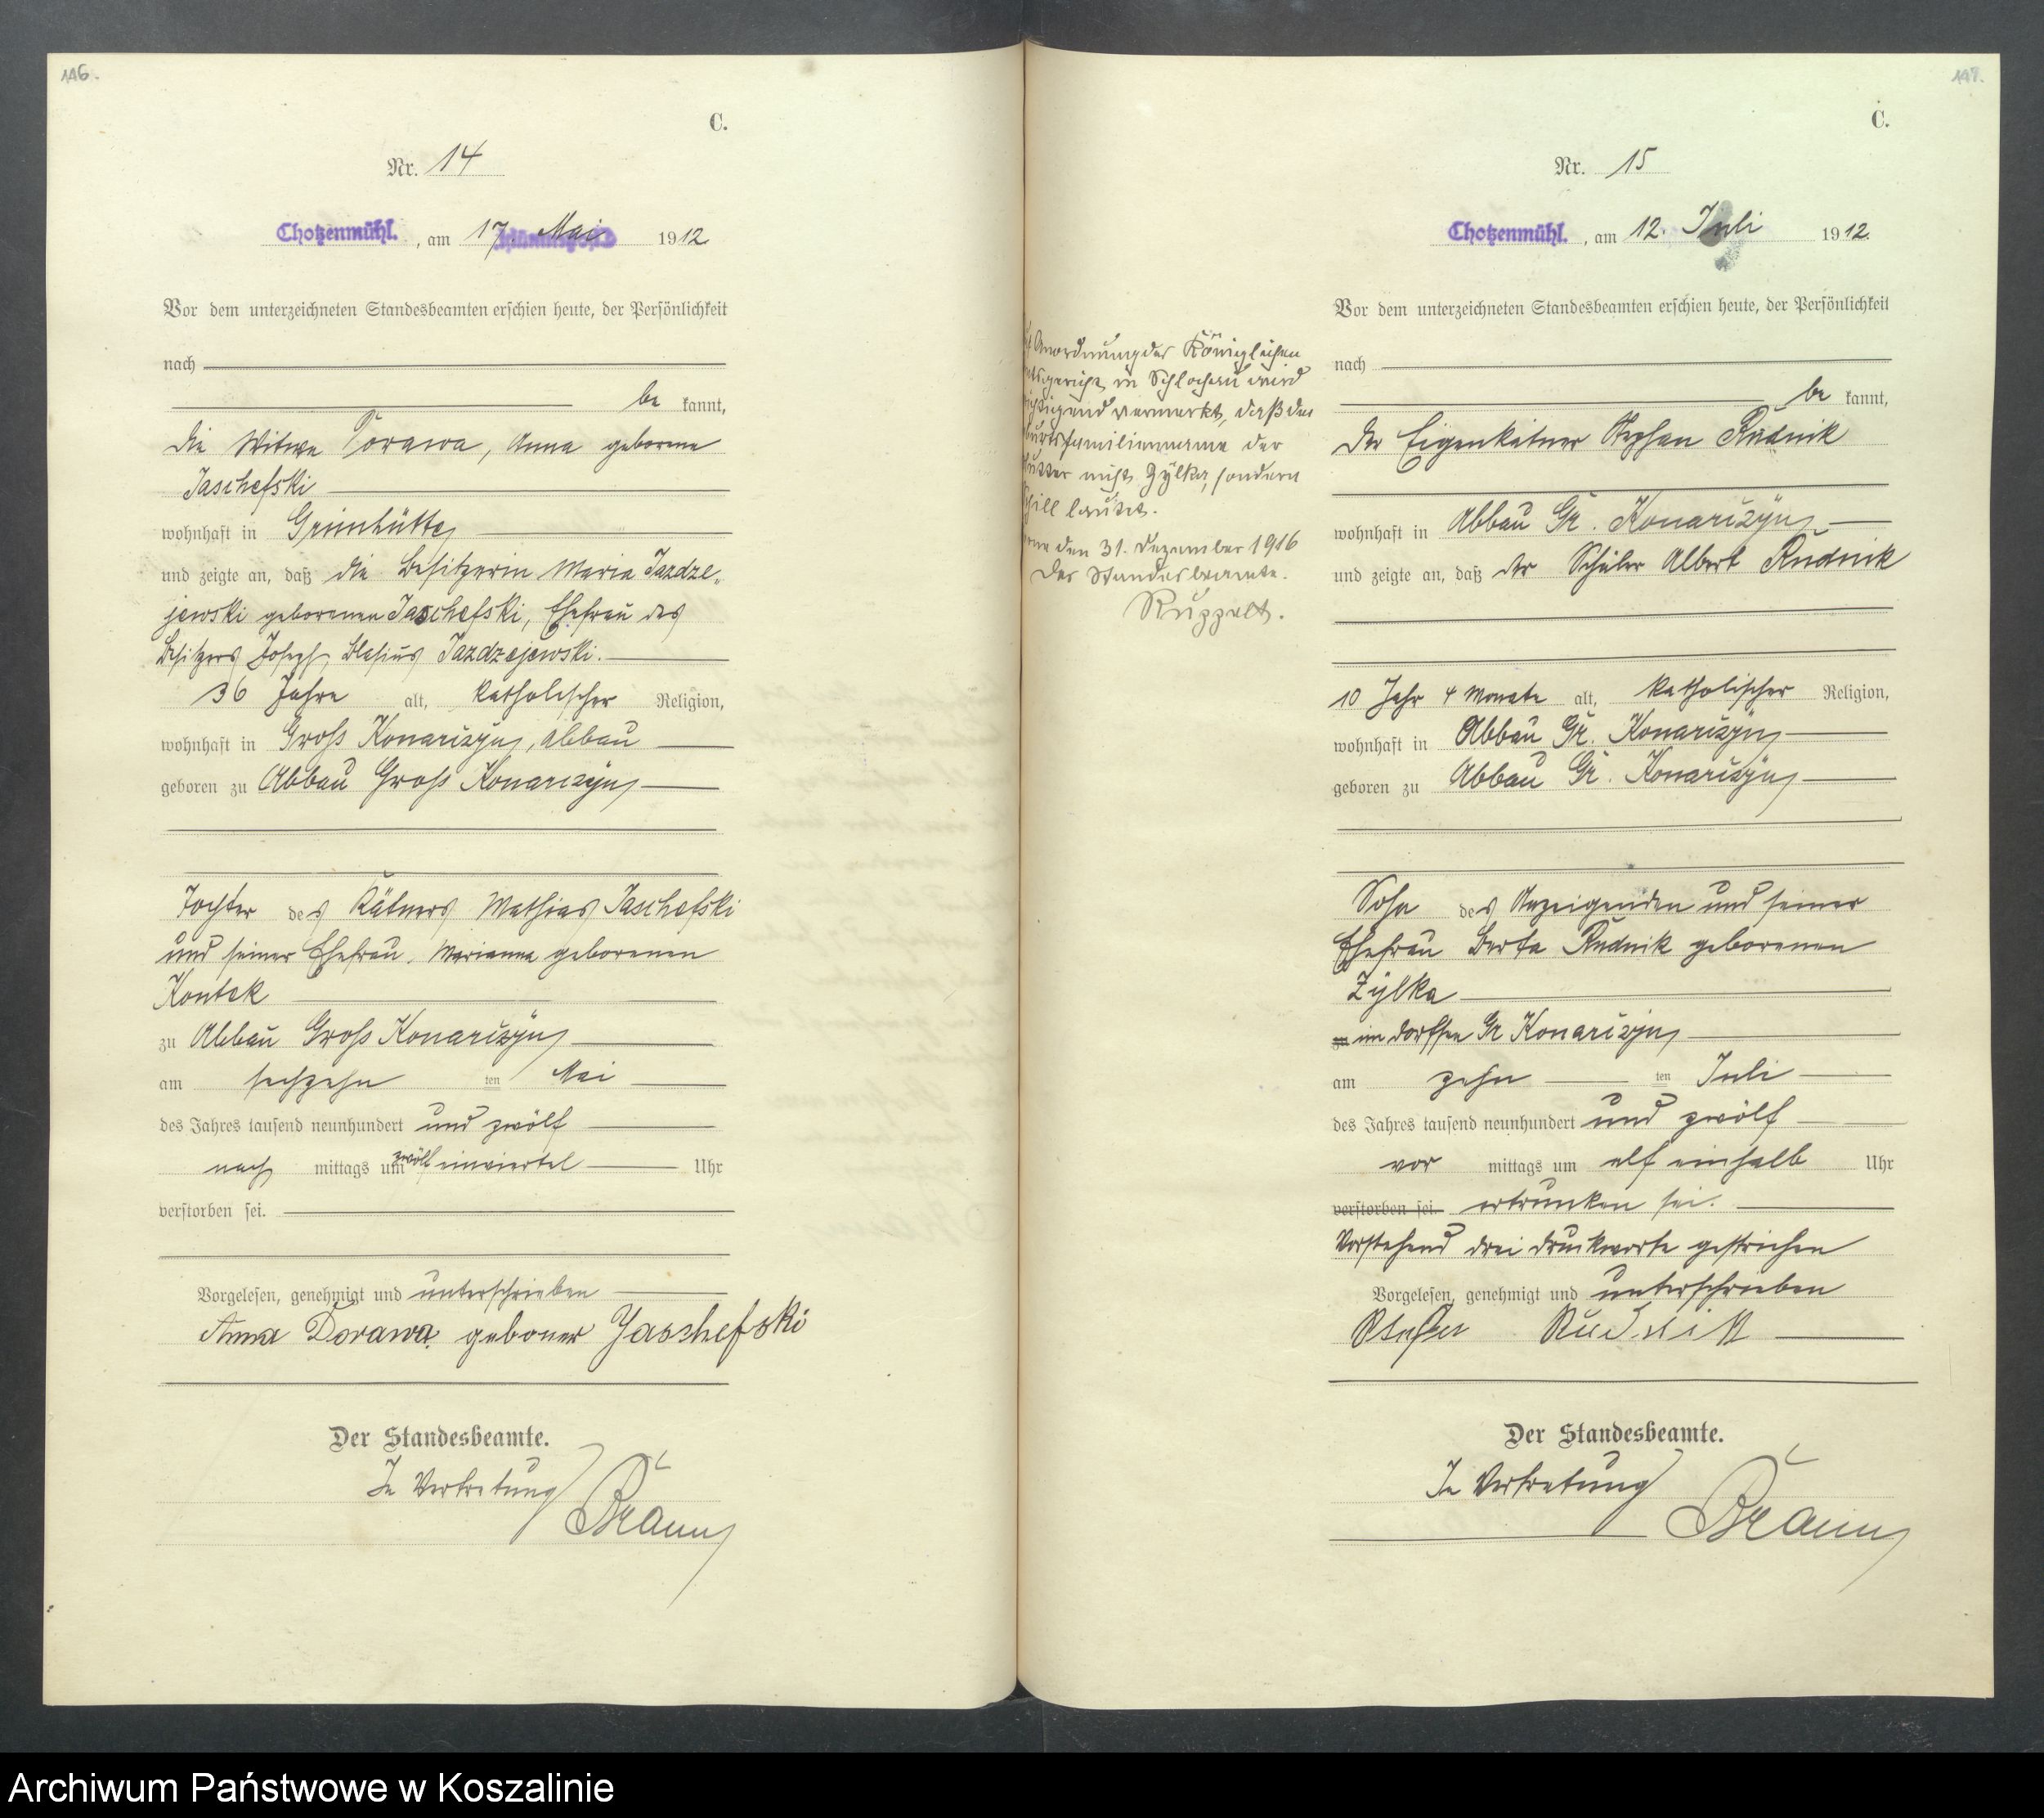 146.
C.
Nr. 14
Chotzenmühl. , am 17. Mai 1912
Vor dem unterzeichneten Standesbeamten erschien heute, der Persönlichkeit
nach
be kannt,
die Witwe Dorawa, Anna geborene
Jaschefski
wohnhaft in Grünhütte
und zeigte an, daß die Besitzerin Maria Jazdze-
jewski geborenen Jaschefski, Ehefrau des
Besitzers Joseph Blasius Jazdzejewski.
36 Jahre alt, katholischer Religion,
wohnhaft in Gross Konarczyn, Abbau
geboren zu Abbau Gross Konarczyn
Tochter des Kätners Mathias Jaschefski
und seiner Ehefrau, Marianna geborenen
Kontek
zu Abbau Gross Konarczyn
am sechzehn ten Mai
des Jahres tausend neunhundert und zwölf
nach mittags um zwölf einviertel Uhr
verstorben sei.
Vorgelesen, genehmigt und unterschrieben
Anna Dorawa geboner Jaschefski
Der Standesbeamte.
In Vertretung
Braun
C.
Nr. 15
Chotzenmühl. , am 12. Juli 1912.
Vor dem unterzeichneten Standesbeamten erschien heute, der Persönlichkeit
nach
be kannt,
der Eigenkätner Stephan Rudnik
wohnhaft in Abbau Gr. Konarczyn
und zeigte an, daß der Schüler Albert Rudnik
10 Jahr 4 Monate alt, katholischer Religion,
wohnhaft in Abbau Gr. Konarczyn
geboren zu Abbau Gr. Konarczyn
Sohn des Anzeigenden und seiner
Ehefrau Berta Rudnik geborenen
Zylka
zu im Gr Konarczyn
am zehn ten Juli
des Jahres tausend neunhundert und zwölf
vor mittags um elf einhalb Uhr
verstorben sei. ertrunken sei.
Vorstehend drei Druckworte gestrichen
Vorgelesen, genehmigt und unterschrieben
Rudnik
Der Standesbeamte.
In Vertretung
Braun
Anordnung des Königlichen
in Schlochau wird
vermerkt, daß der
der
nicht Zylka, sondern
lautet.
den 31. Dezember 1916
Der Standesbeamte.
Ruppelt.
Archiwum Państwowe w Koszalinie